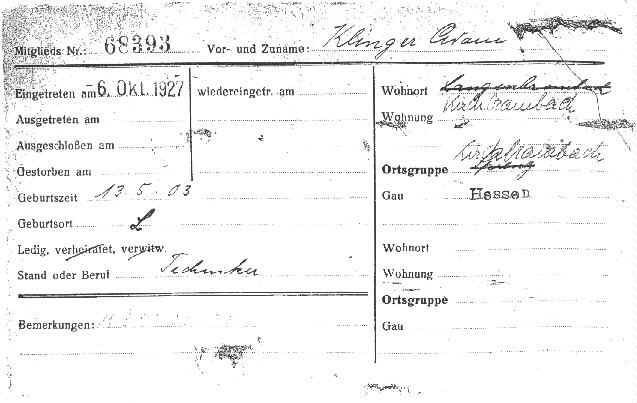 Mitglieds Nr.: 68393 Vor- und Zuname: Klinger Adam
Eingetreten am 6. Okt. 1927
wiedereingetr. am
Ausgetreten am
Ausgeschloßen am
Gestorben am
Geburtszeit 13 5. 03
Geburtsort L
Ledig, verheiratet, verwitw.
Stand oder Beruf Techniker
Bemerkungen:
Wohnort
Wohnung Kirchbrombach
Ortsgruppe Kirchbrombach
Gau Hessen
Wohnort
Wohnung
Ortsgruppe
Gau